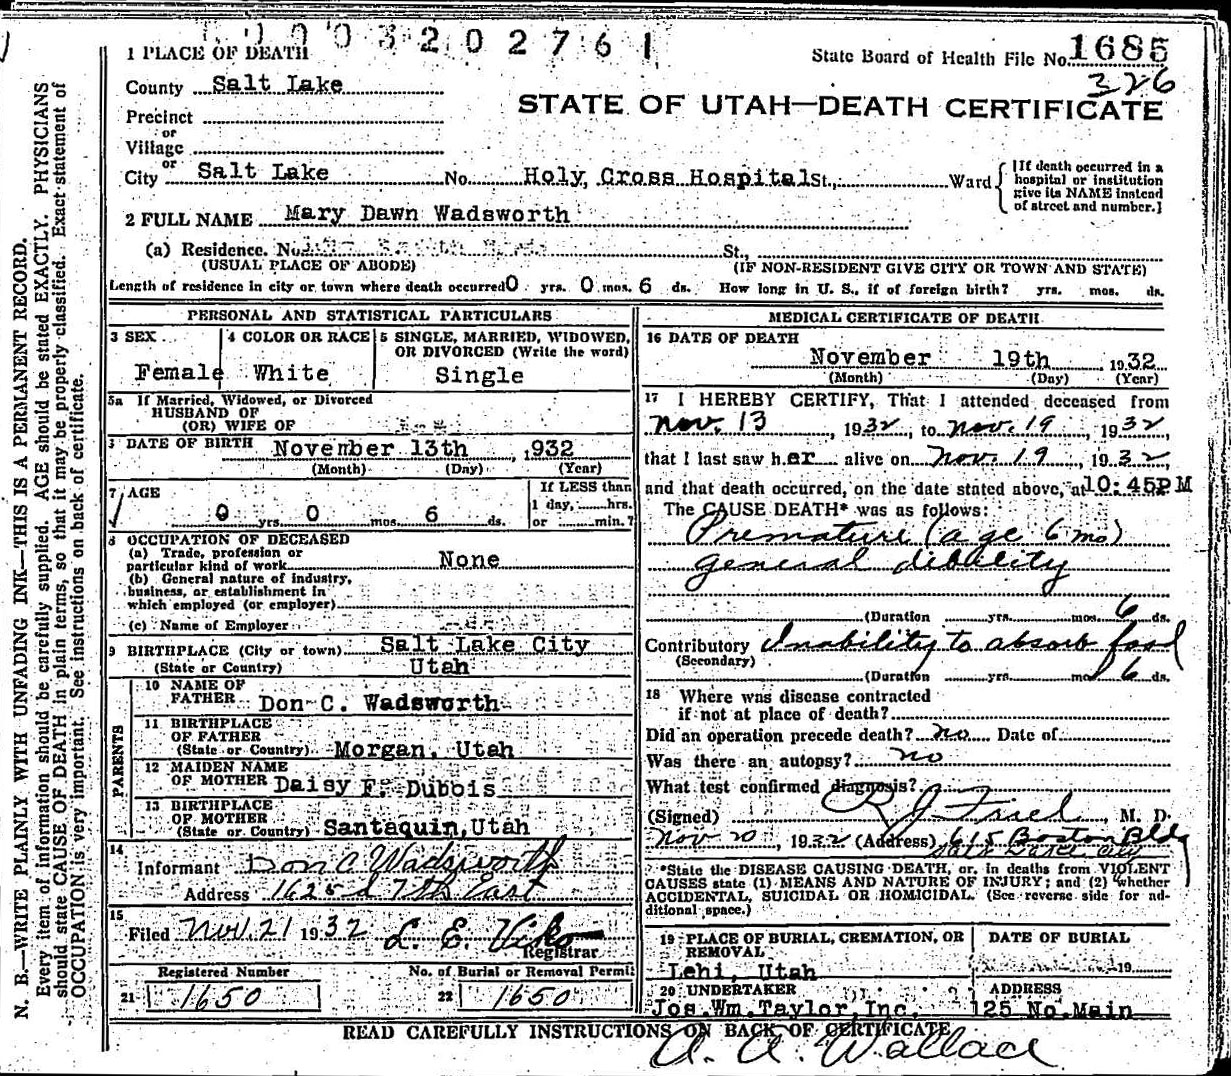 1003202761
1 PLACE OF DEATH
State Board of Health File No. 1685
326
County Salt Lake
STATE OF UTAH—DEATH CERTIFICATE
Precinct
or
Village
or
City Salt Lake No. Holy Cross Hospital St., Ward
[If death occurred in a
hospital or institution
give its NAME instead
of street and number.]
2 FULL NAME Mary Dawn Wadsworth
(a) Residence. No. St.,
(USUAL PLACE OF ABODE) (IF NON-RESIDENT GIVE CITY OR TOWN AND STATE)
Length of residence in city or town where death occurred 0 yrs. 0 mos. 6 ds. How long in U. S., if of foreign birth? yrs. mos. ds.
PERSONAL AND STATISTICAL PARTICULARS
3 SEX
Female
4 COLOR OR RACE
White
5 SINGLE, MARRIED, WIDOWED,
OR DIVORCED (Write the word)
Single
5a If Married, Widowed, or Divorced
HUSBAND OF
(OR) WIFE OF
DATE OF BIRTH November 13th, 1932
(Month) (Day) (Year)
7 AGE
0 yrs. 0 mos. 6 ds.
If LESS than
1 day, hrs.
or min.?
8 OCCUPATION OF DECEASED
(a) Trade, profession or
particular kind of work None
(b) General nature of industry,
business, or establishment in
which employed (or employer)
(c) Name of Employer
9 BIRTHPLACE (City or town) Salt Lake City
(State or Country) Utah
PARENTS
10 NAME OF
FATHER Don C. Wadsworth
11 BIRTHPLACE
OF FATHER
(State or Country) Morgan, Utah
12 MAIDEN NAME
OF MOTHER Daisy F. Dubois
13 BIRTHPLACE
OF MOTHER
(State or Country) Santaquin, Utah
14
Informant Don C Wadsworth
Address 7th East
15
Filed Nov. 21 1932 L. E. Viko
Registrar
Registered Number No. of Burial or Removal Permit
21 1650 22 1650
MEDICAL CERTIFICATE OF DEATH
16 DATE OF DEATH
November 19th 1932
(Month) (Day) (Year)
17 I HEREBY CERTIFY, That I attended deceased from
Nov. 13, 1932, to Nov. 19, 1932,
that I last saw her alive on Nov. 19, 1932,
and that death occurred, on the date stated above, at 10:45P M
The CAUSE DEATH* was as follows:
Premature (age 6 mo)
general debility
(Duration yrs. mos. 6 ds.
Contributory Inability to absorb food
(Secondary)
(Duration yrs. mos 6 ds.
18 Where was disease contracted
if not at place of death?
Did an operation precede death? no Date of
Was there an autopsy? no
What test confirmed diagnosis?
(Signed) R J Friel, M. D.
Nov 20, 1932 (Address) 615 Boston Bldg
Salt Lake City
*State the DISEASE CAUSING DEATH, or, in deaths from VIOLENT
CAUSES state (1) MEANS AND NATURE OF INJURY; and (2) whether
ACCIDENTAL, SUICIDAL OR HOMICIDAL. (See reverse side for ad-
ditional space.)
19 PLACE OF BURIAL, CREMATION, OR
REMOVAL
Lehi, Utah
DATE OF BURIAL
19
20 UNDERTAKER
Jos. Wm. Taylor, Inc.
ADDRESS
125 No. Main
READ CAREFULLY INSTRUCTIONS ON BACK OF CERTIFICATE
A. A. Wallace
N. B.—WRITE PLAINLY WITH UNFADING INK—THIS IS A PERMANENT RECORD.
Every item of information should be carefully supplied. AGE should be stated EXACTLY. PHYSICIANS
should state CAUSE OF DEATH in plain terms, so that it may be properly classified. Exact statement of
OCCUPATION is very important. See instructions on back of certificate.